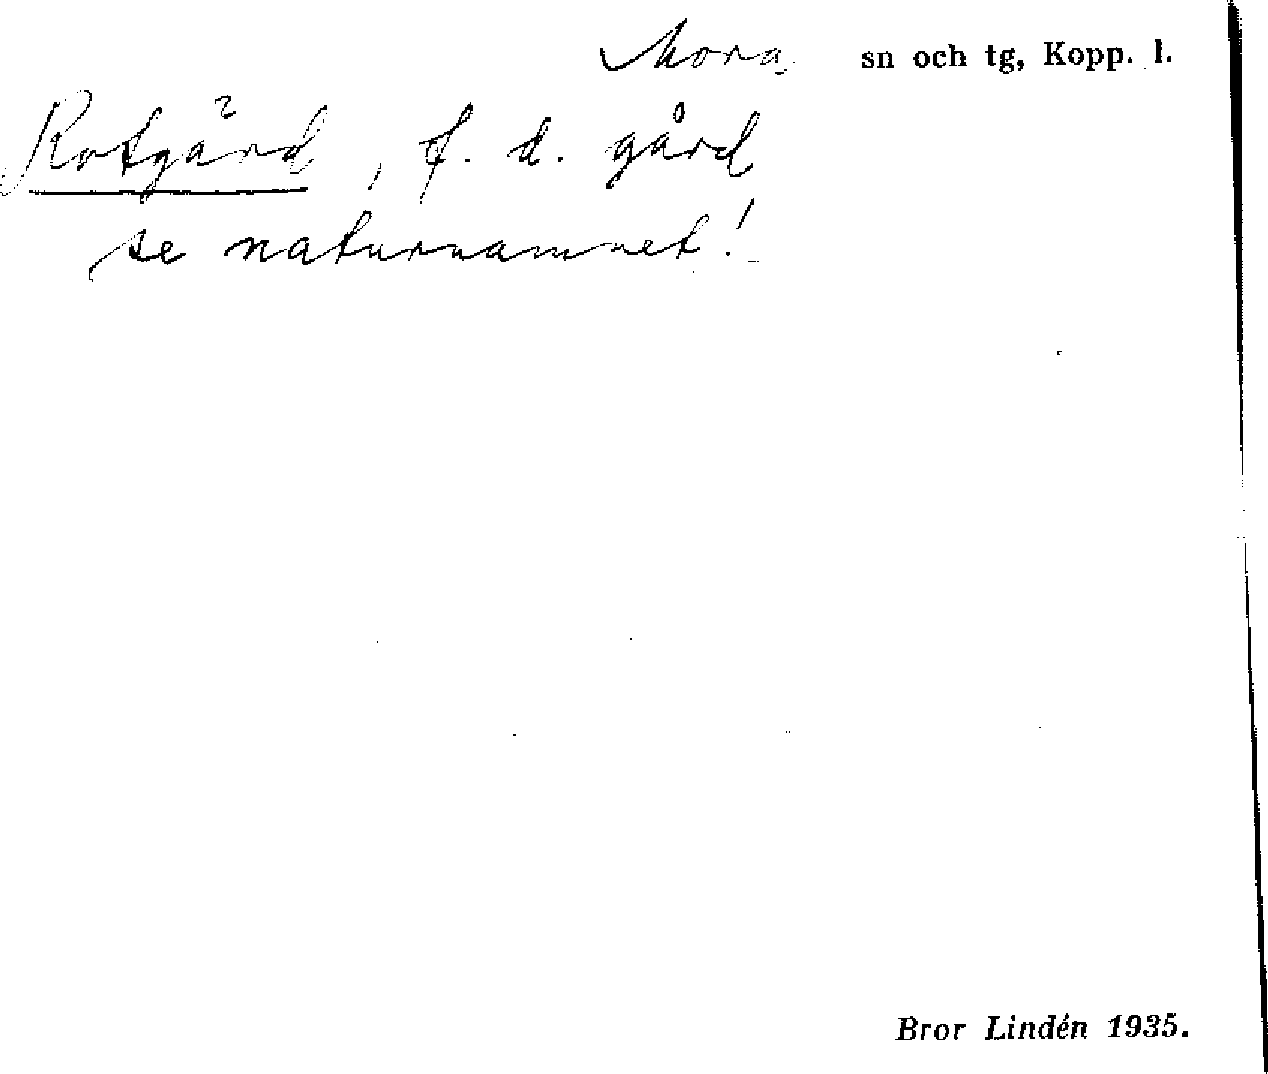 Mora sn och tg, Kopp. l.
Rotgård, f. d. gård
se naturnamnet!
Bror Lindén 1935.